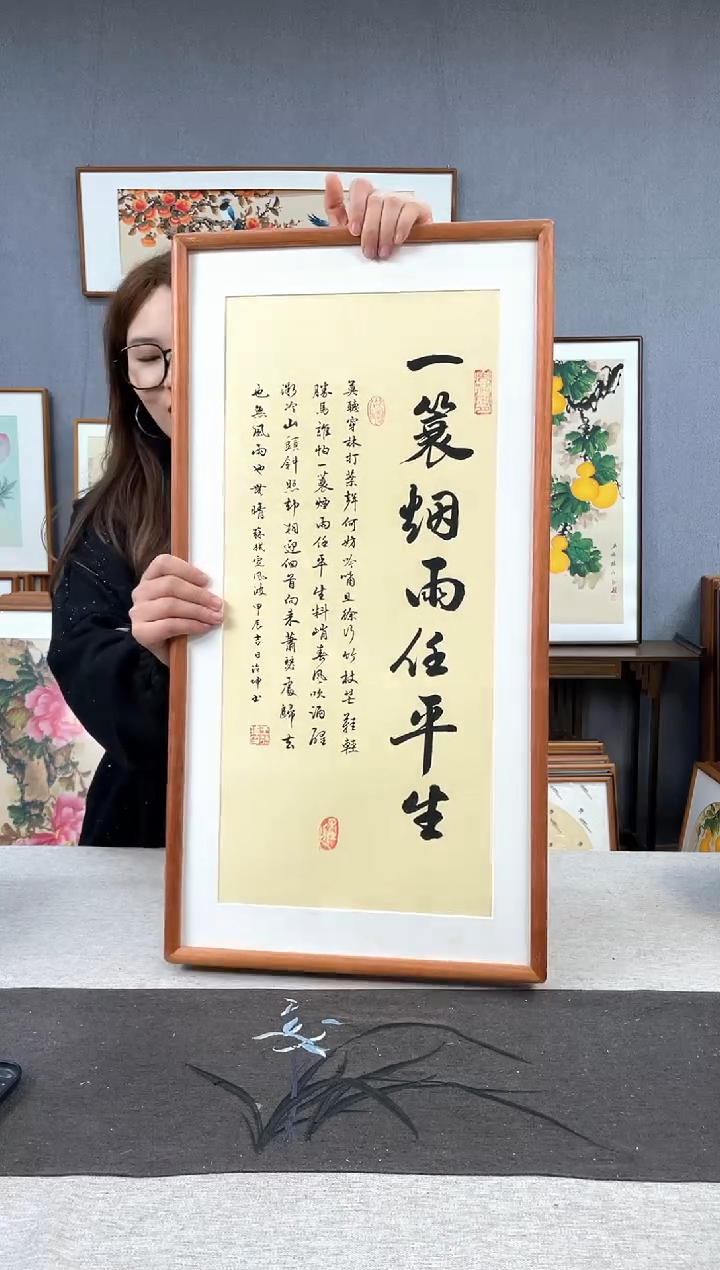 一蓑烟雨任平生
莫聽穿林打葉聲何妨吟嘯且徐行竹杖芒鞋輕
勝馬誰怕一蓑煙雨任平生料峭春风吹酒醒
微冷山頭斜照却相迎回首向来蕭瑟處歸去
也無風雨也無晴蘇軾定風波甲辰吉日书